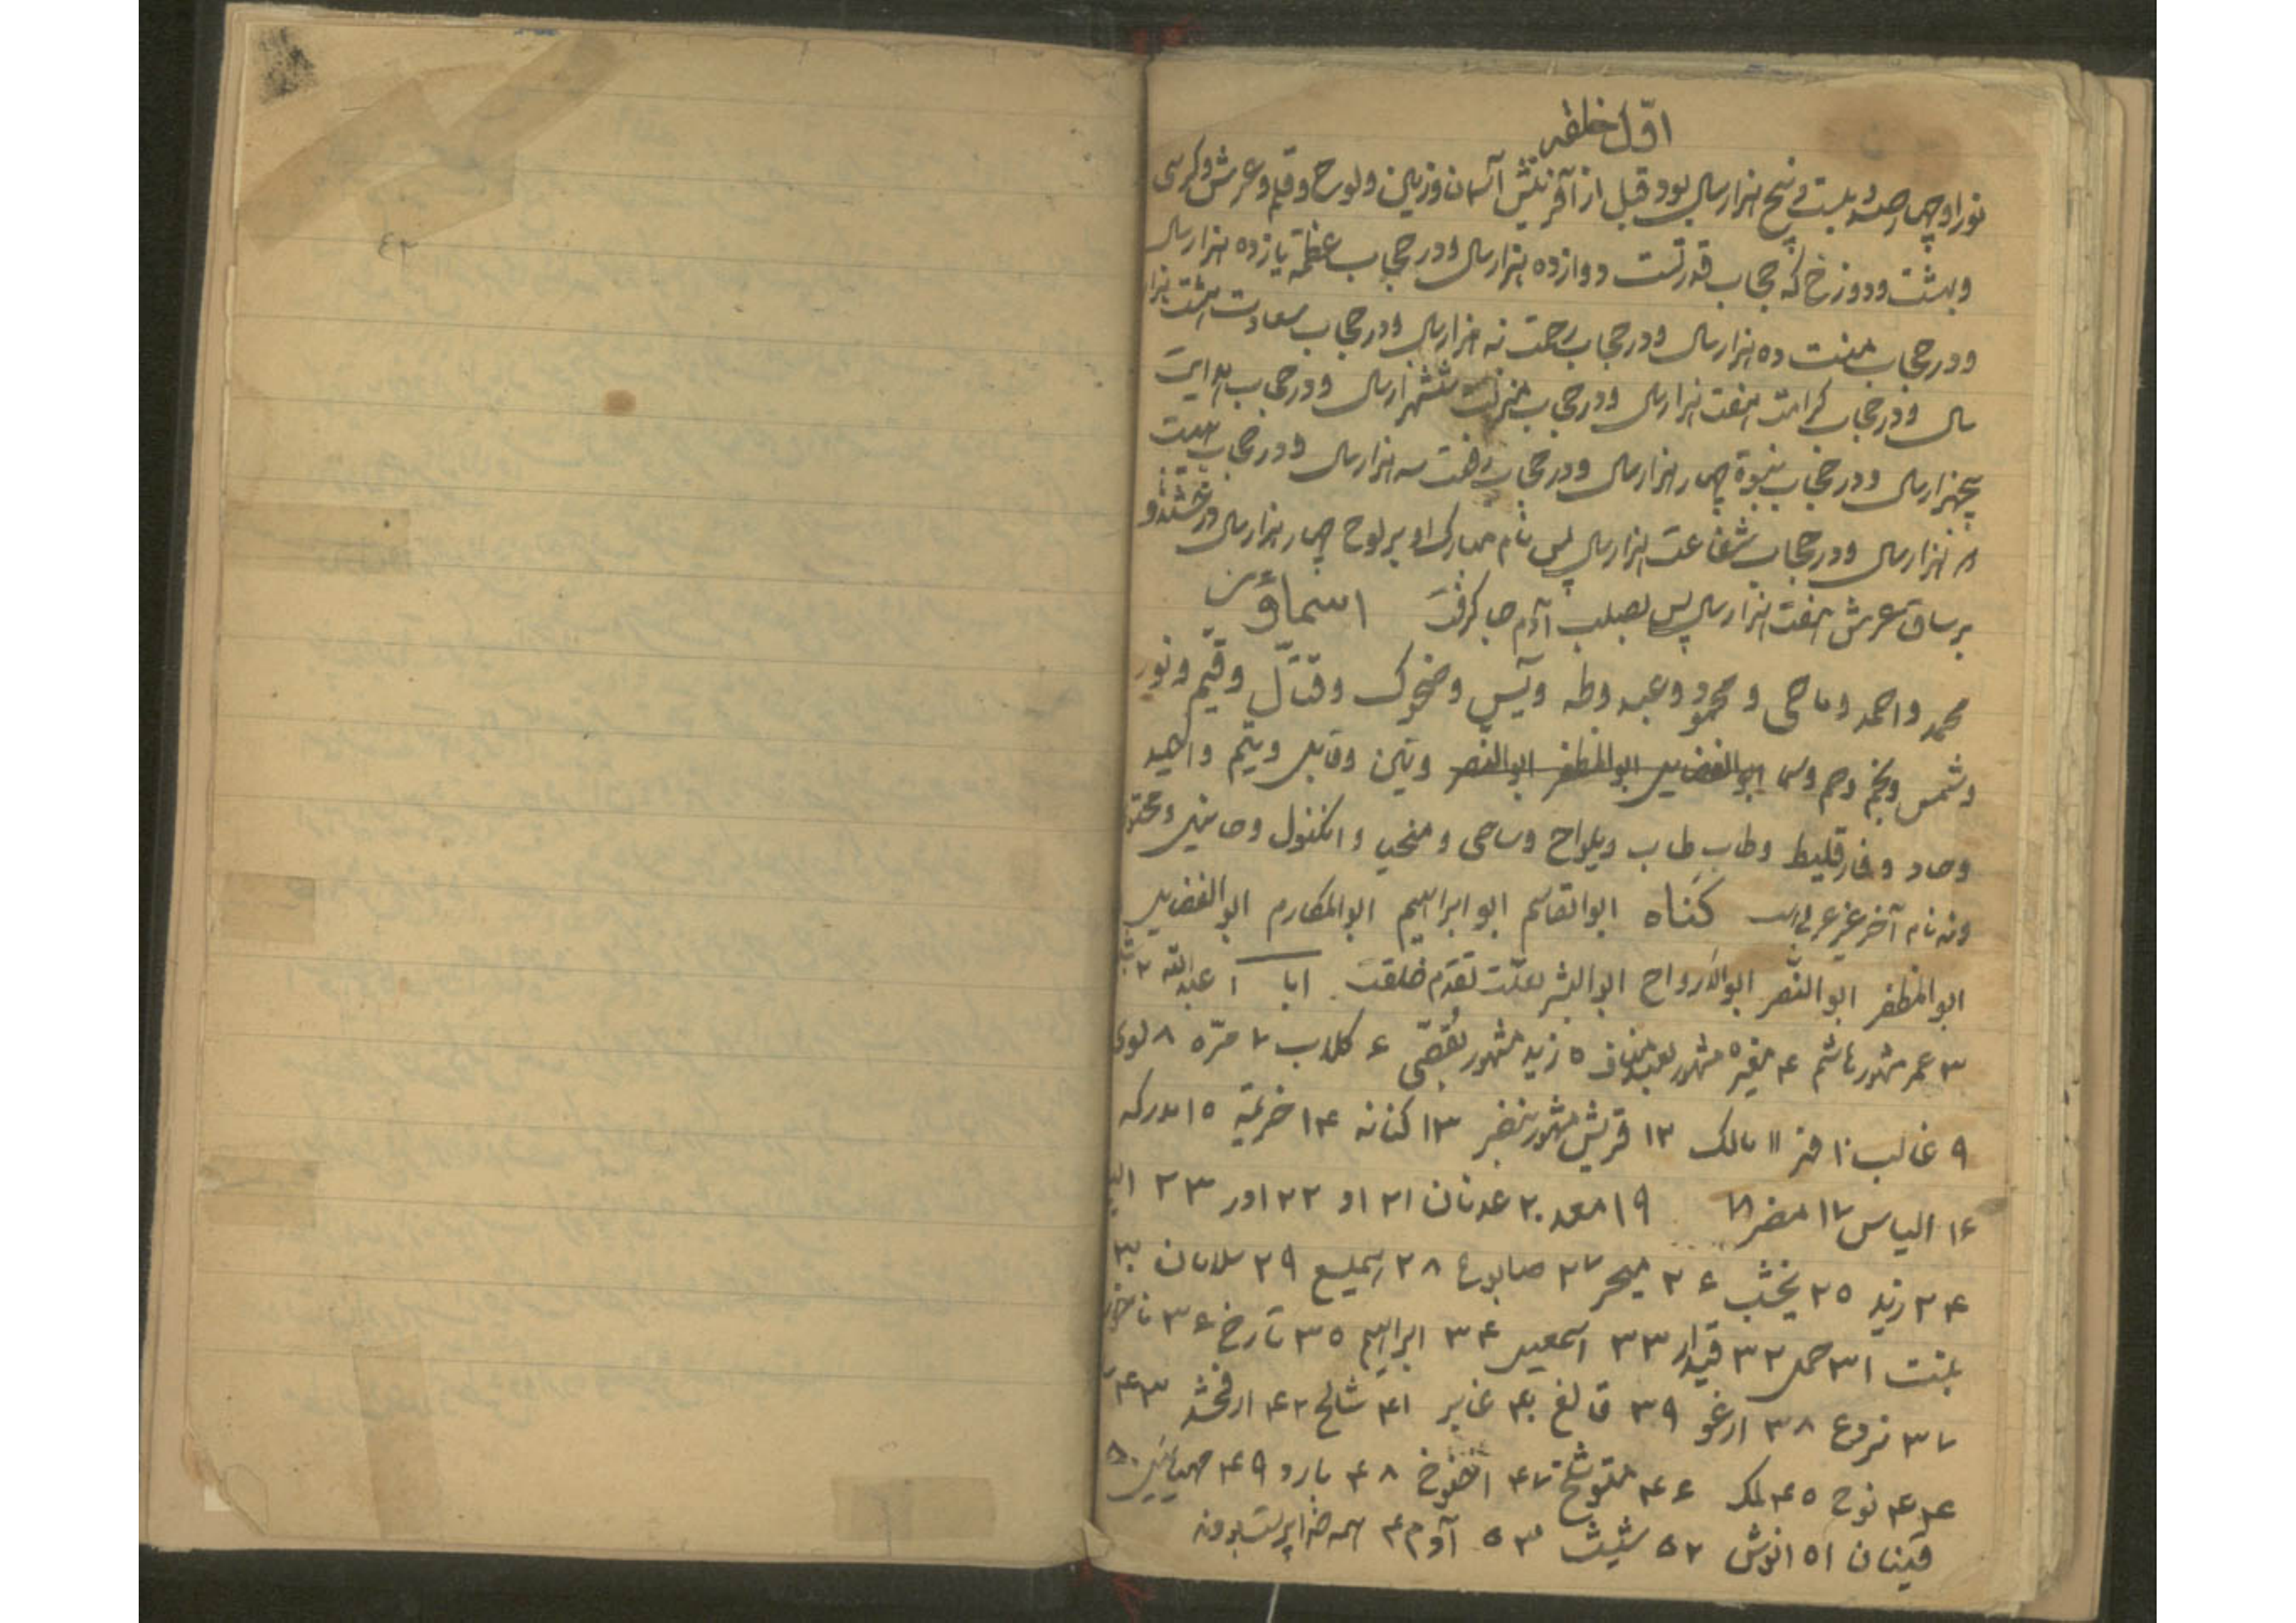 اوّل خلقه
نور او چهارصد و بیست و پنج هزار سال بود قبل از آفرینش آسمان و زمین و لوح و قلم و عرش و کرسی
و بهشت و دوزخ که حجاب قدرتست دوازده هزار سال و در حجاب عظمة یازده هزار سال
و در حجاب منت ده هزار سال و در حجاب رحمت نه هزار سال و در حجاب سعادت هشت هزار
سال و در حجاب کرامت هفت هزار سال و در حجاب منزلت ششهزار سال و در حجاب هدایت
پنجهزار سال و در حجاب نبوة چهار هزار سال و در حجاب رفعت سه هزار سال و در حجاب هیبت
هزار سال و در حجاب شفاعت هزار سال پس نام مبارک او بر لوح چهار هزار سال درخشید و
بر ساق عرش هفت هزار سال پس بصلب آدم جا گرفت اسماؤ
محمد و احمد و ماحی و محمود و عبد و طه و یس و ضحوک و قتّال و قیّم و نور
و شمس و نجم و حم و ابوالفضایل ابوالمظفر ابوالنصر و تین و قایل و یتیم و احید
و صاد و فارقلیط و طاب طاب و یلواح و ساحی و منحب و
و نه نام آخر غیر عربی است کناه ابوالقاسم ابو ابراهیم ابوالمکارم ابوالفضایل
ابوالمظفر ابوالنصر ابوالارواح ابوالبشر بعلت تقدم خلقت ابا ۱ عبدالله ۲
۳ عمر مشهور هاشم ۴ مغیره مشهور بعبدمناف ۵ زید مشهور بقصی ۶ کلاب ۷ مرّه ۸ لوی
۹ غالب ۱۰ فهر ۱۱ مالک ۱۲ قریش مشهور بنضر ۱۳ کنانه ۱۴ خزیمة ۱۵ مدرکه
۱۶ الیاس ۱۷ مضر ۱۸ ۱۹ معد ۲۰ عدنان ۲۱ اد ۲۲ ادر ۲۳
۲۴ زید ۲۵ یخشب ۲۶ ۲۷ صابوع ۲۸ ۲۹ سلامان ۳۰
بنت ۳۱ حمل ۳۲ قیدار ۳۳ اسمعیل ۳۴ ابراهیم ۳۵ تارخ ۳۶ ناخور
۳۷ ۳۸ ارغو ۳۹ قالغ ۴۰ غابر ۴۱ شالخ ۴۲ ارفخشد ۴۳
۴۴ نوح ۴۵ لمک ۴۶ متوشلخ ۴۷ اخنوخ ۴۸ یارد ۴۹ ۵۰
قینان ۵۱ انوش ۵۲ شیث ۵۳ آدم ۴ همه خداپرست بودند
۴۲